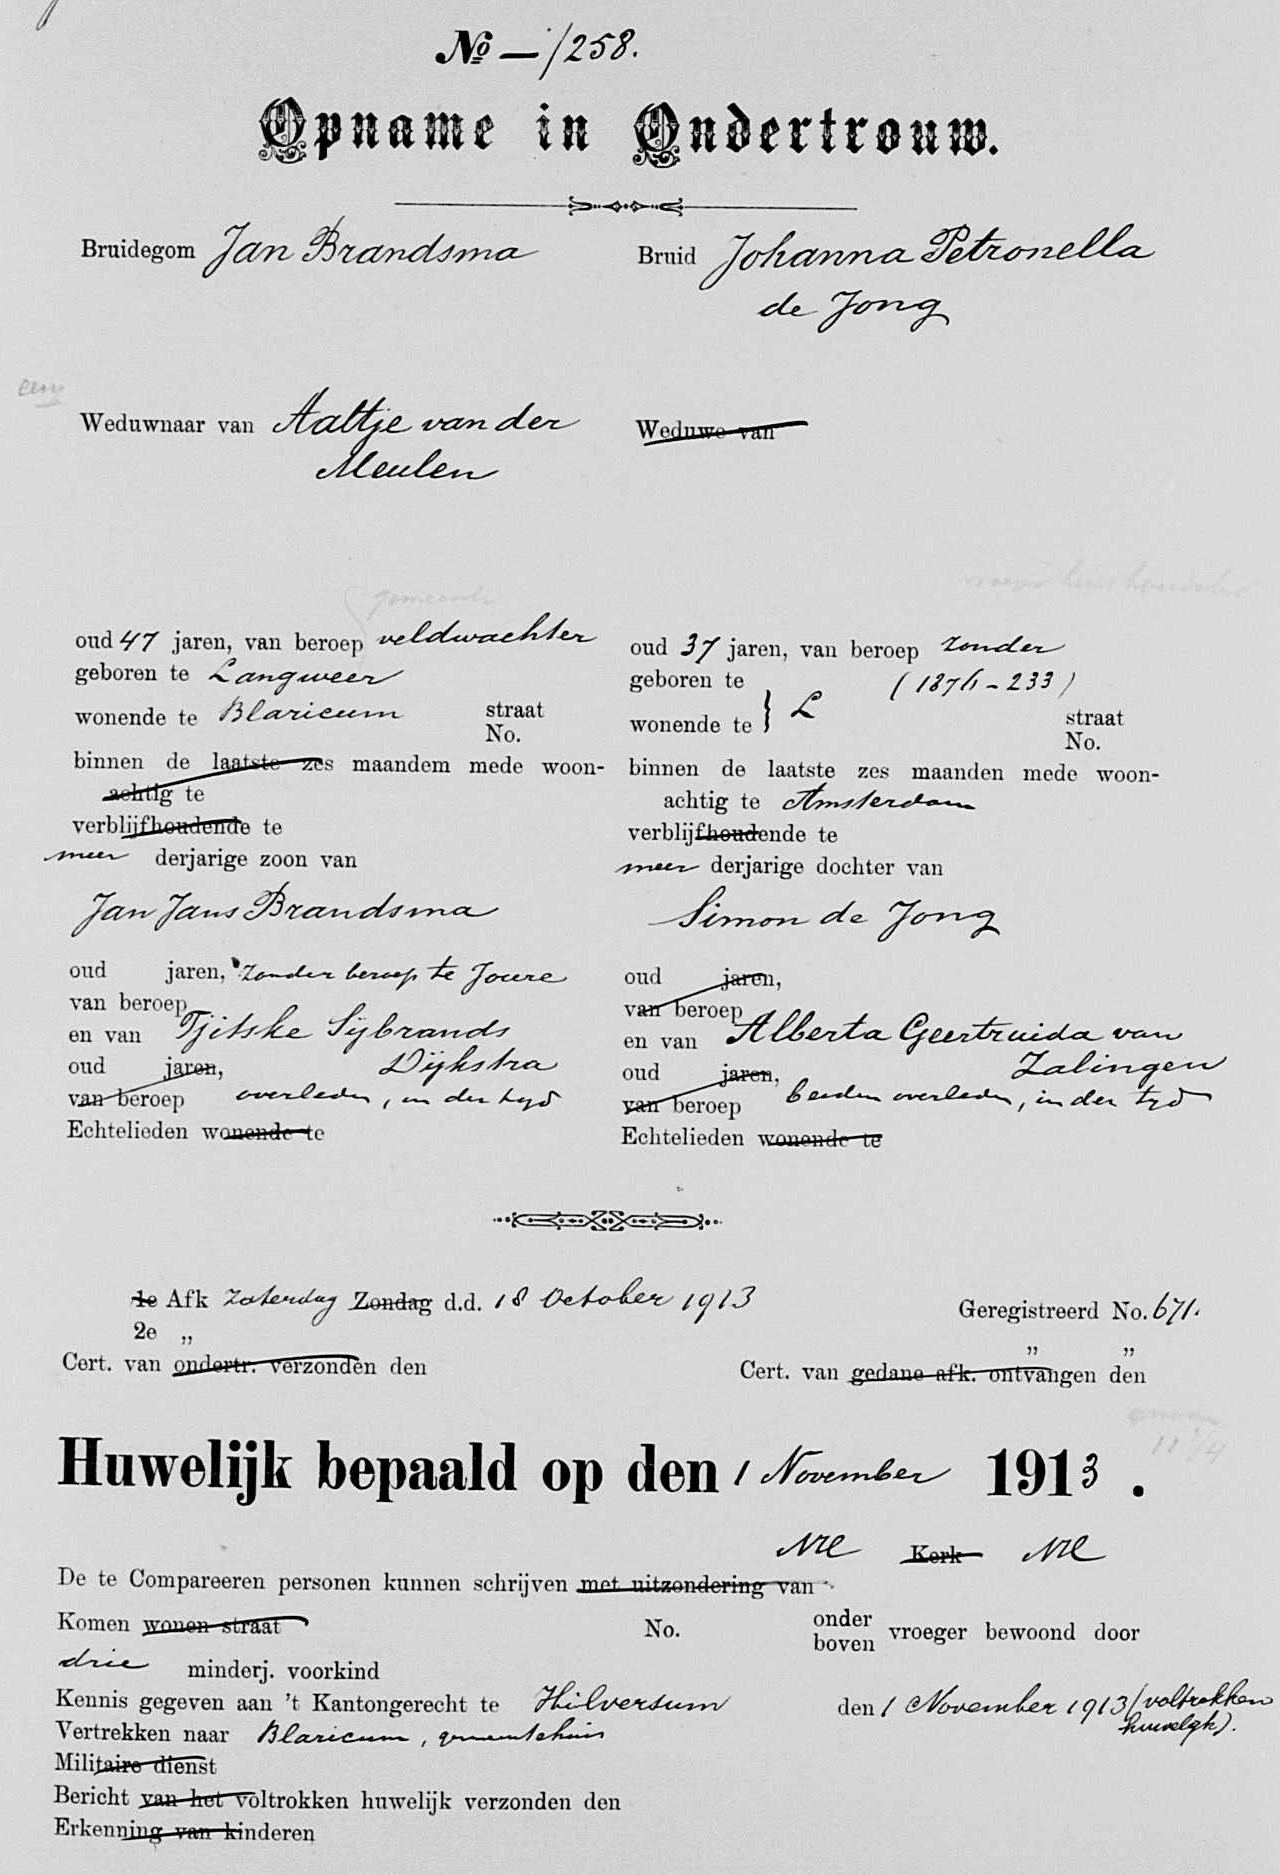 No — /258.
Opname in Ondertrouw.
Bruidegom Jan Brandsma
Bruid Johanna Petronella
de Jong
Weduwnaar van Aaltje van der
Meulen
Weduwe van
gemeente
oud 47 jaren, van beroep veldwachter
geboren te Langweer
wonende te Blaricum straat
No.
binnen de laatste zes maandem mede woon-
achtig te
verblijfhoudende te
meer derjarige zoon van
Jan Jans Brandsma
oud jaren, zonder beroep te Joure
van beroep
en van Tjitske Sijbrands
oud jaren, Dijkstra
van beroep overleden, in der tijd
Echtelieden wonende te
oud 37 jaren, van beroep zonder
geboren te (1876-233)
wonende te } L straat
No.
binnen de laatste zes maanden mede woon-
achtig te Amsterdam
verblijfhoudende te
meer derjarige dochter van
Simon de Jong
oud jaren,
van beroep
en van Alberta Geertruida van
oud jaren, Zalingen
van beroep beiden overleden, in der tijd
Echtelieden wonende te
1e Afk zaterdag Zondag d.d. 18 October 1913
Geregistreerd No. 671.
2e „
„ „
Cert. van ondertr. verzonden den
Cert. van gedane afk. ontvangen den
Huwelijk bepaald op den 1 November 1913.
Kerk
De te Compareeren personen kunnen schrijven met uitzondering van
Komen wonen straat No. onder
boven vroeger bewoond door
drie minderj. voorkind
Kennis gegeven aan 't Kantongerecht te Hilversum den 1 November 1913 (voltrekken
huwelijk).
Vertrekken naar Blaricum, gemeentehuis
Militaire dienst
Bericht van het voltrokken huwelijk verzonden den
Erkenning van kinderen